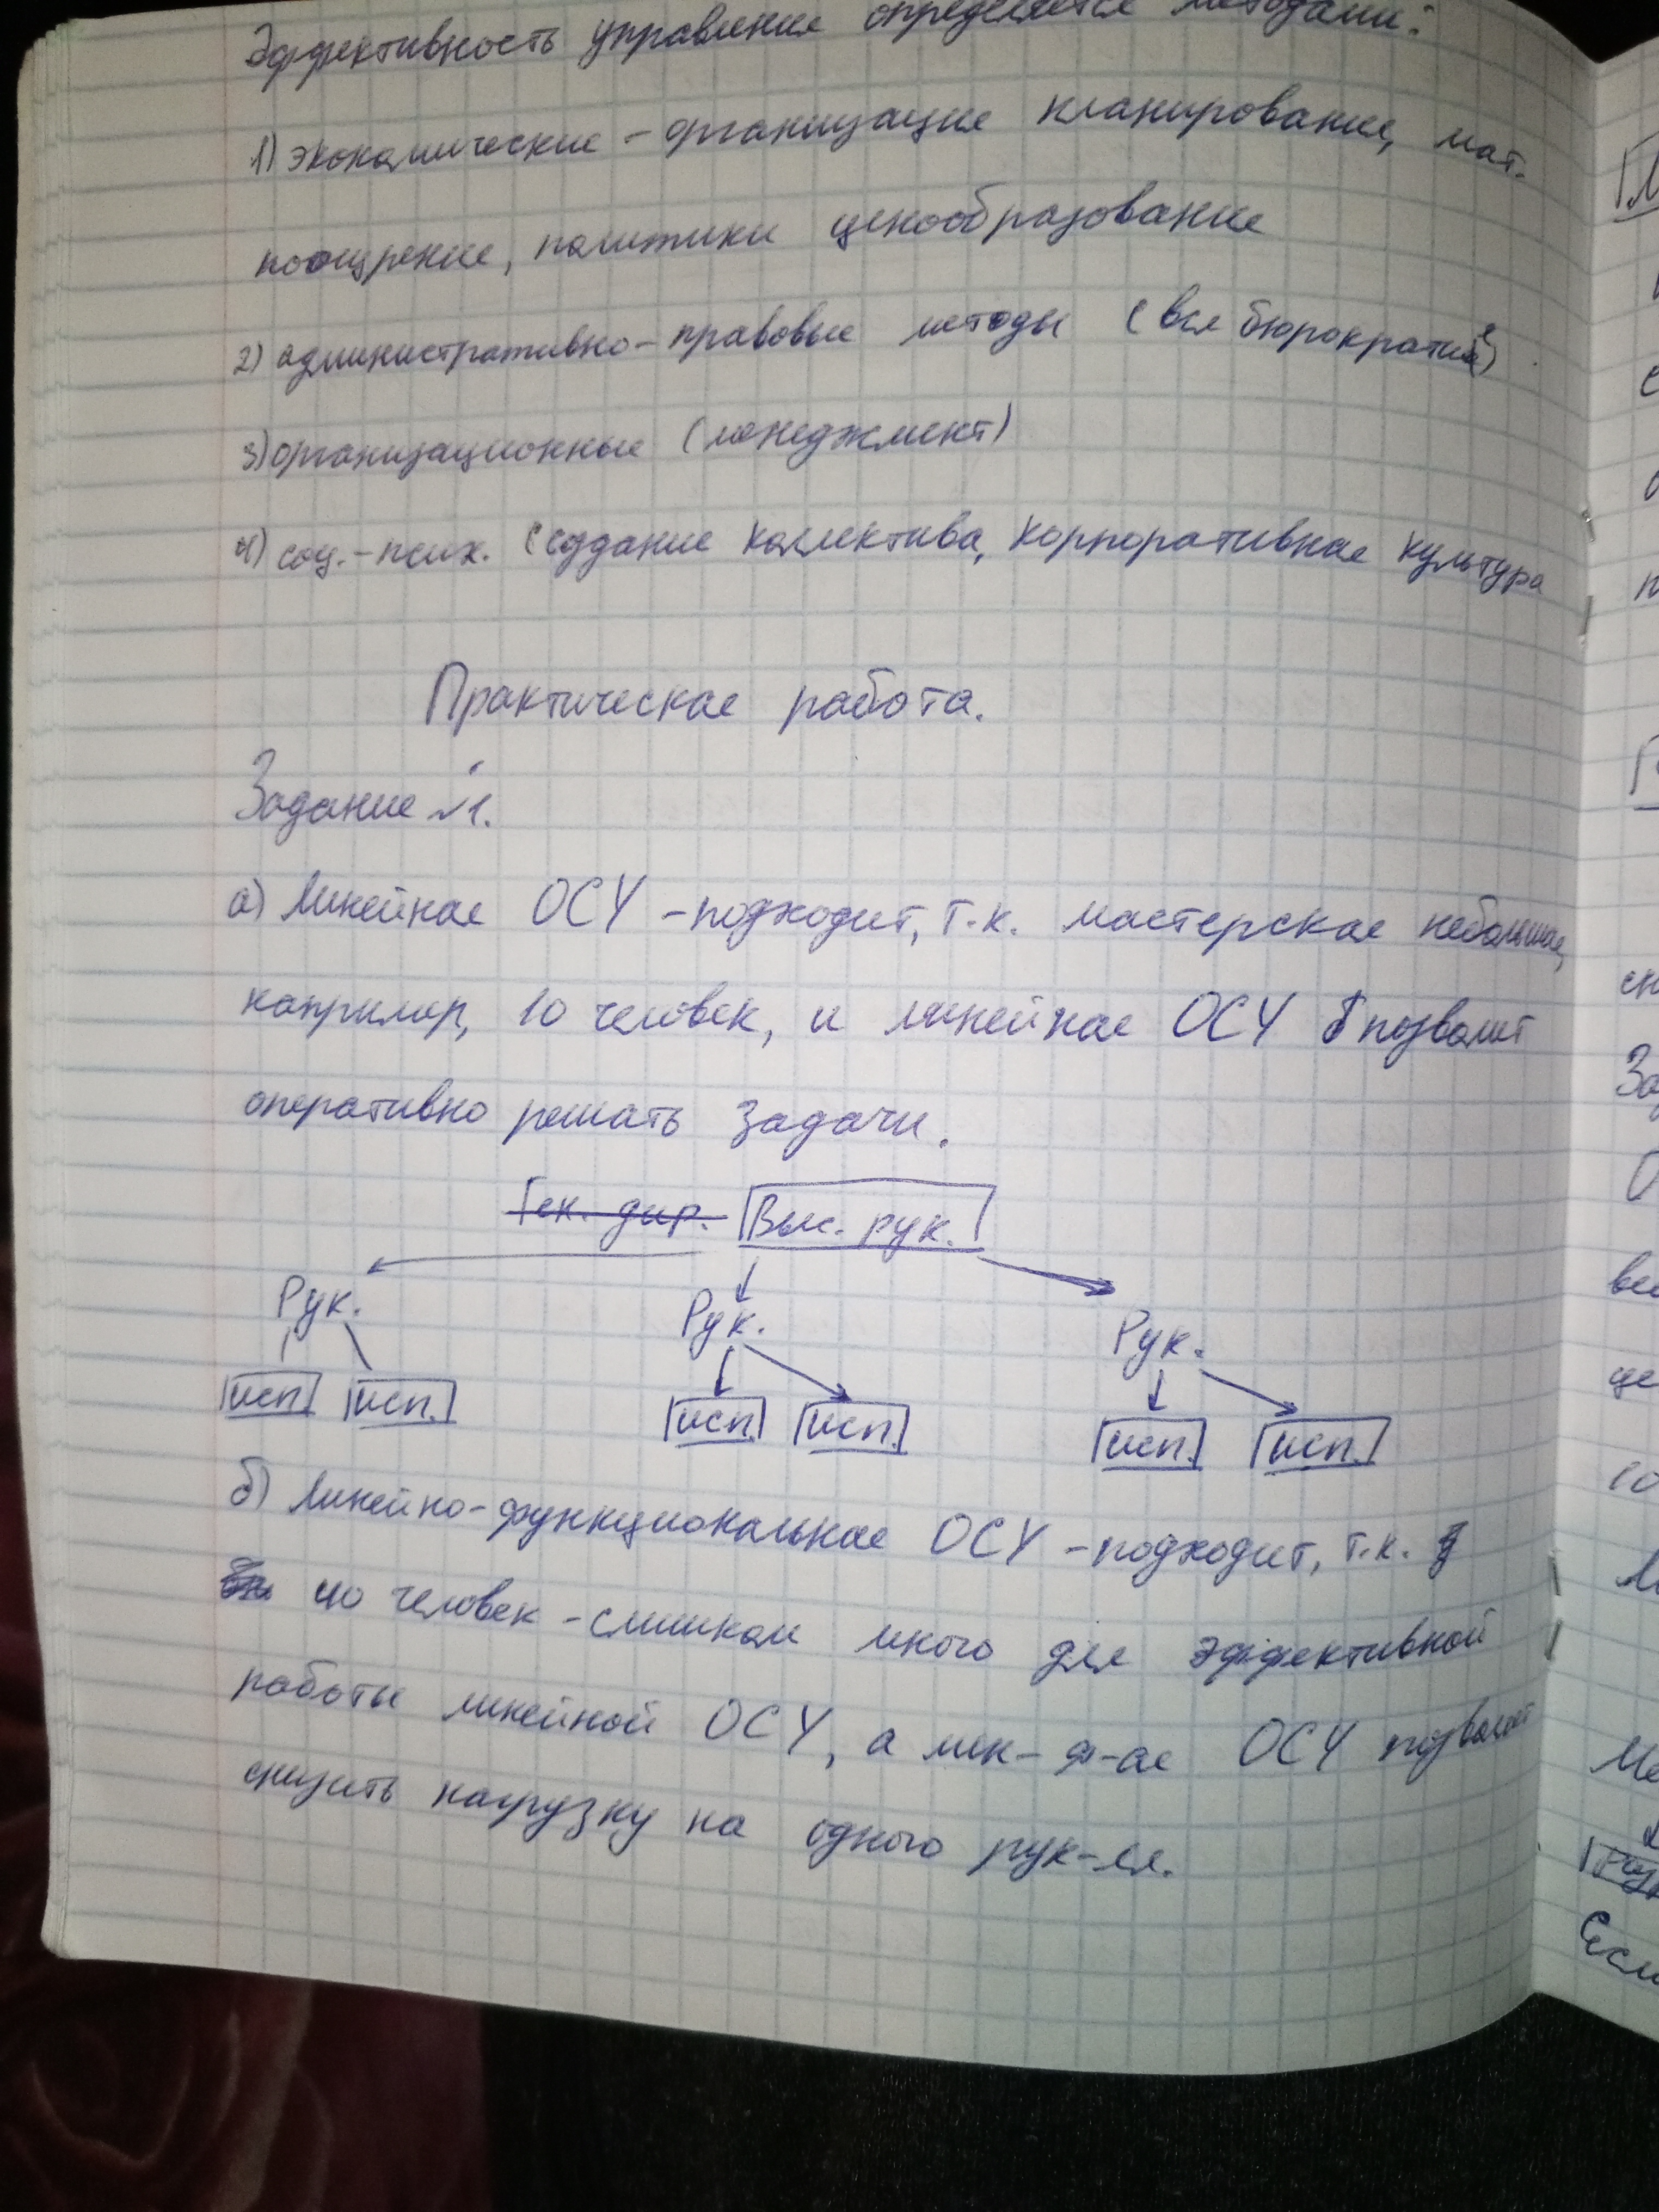 Эффективность управления определяется методами:
1) экономические - организация планирование, мат.
поощрение, политики ценообразование
2) административно-правовые методы (вся бюрократия)
3) организационные (менеджмент)
4) соц.-псих. (создание коллектива, корпоративная культура
Практическая работа.
Задание №1.
а) Линейная ОСУ - подходит, т.к. мастерская небольшая,
например, 10 человек, и линейная ОСУ позволит
оперативно решать задачи.
Ген. дир. Выс. рук.
Рук. Рук. Рук.
исп. исп. исп. исп. исп. исп.
б) Линейно-функциональная ОСУ - подходит, т.к.
40 человек - слишком много для эффективной
работы линейной ОСУ, а лин-ф-ая ОСУ позволяет
снизить нагрузку на одного рук-ля.